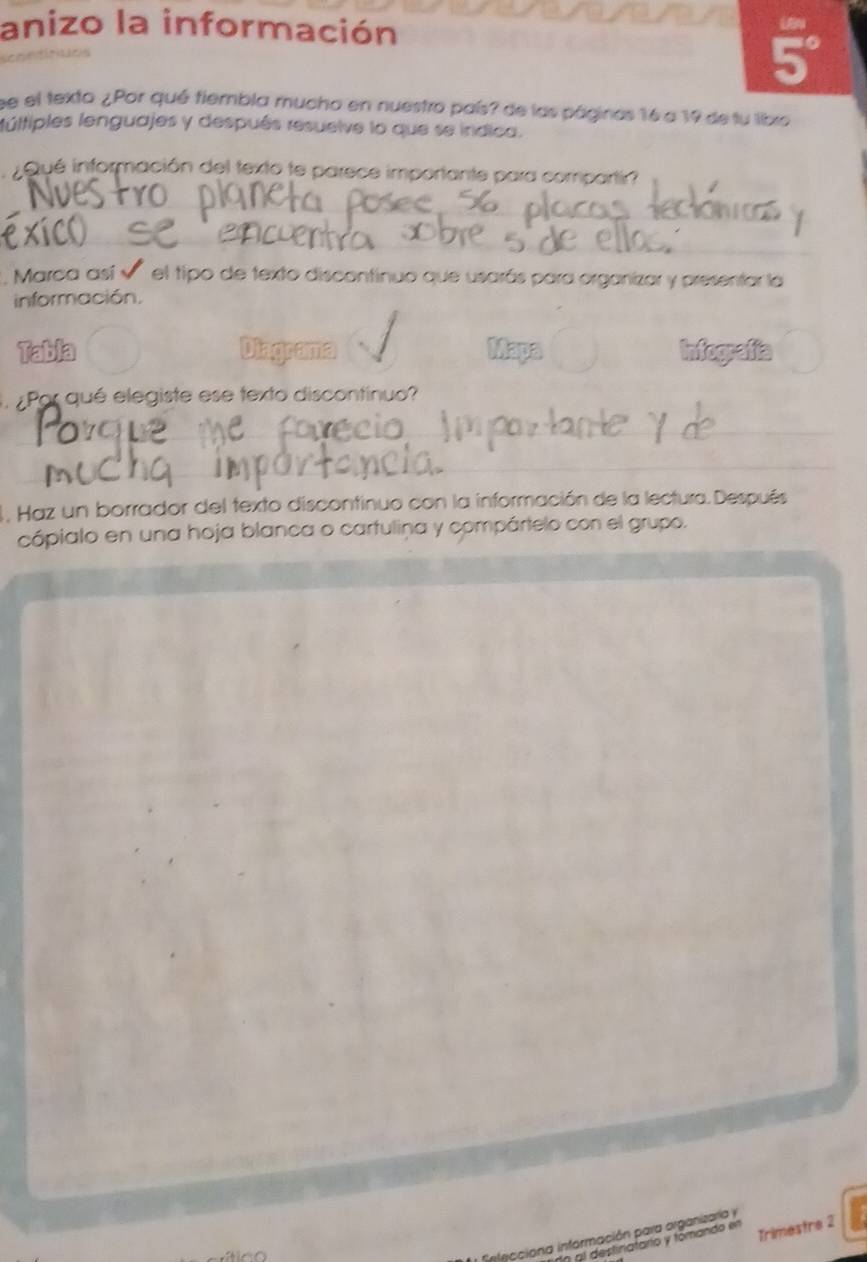 anizo la información
LBN
5°
ee el texto ¿Por qué tiembla mucho en nuestro país? de las páginas 16 a 19 de tu libro
Múltiples lenguajes y después resuelve lo que se indica.
. ¿Qué información del texto te parece importante para compartir?
Nuestro planeta posee 56 placas tectónicas y
éxico se encuentra sobre 5 de ellas.
. Marca así ✓ el tipo de texto discontinuo que usarás para organizar y presentar la
información.
Tabla Diagrama ✓ Mapa Infografía
. ¿Por qué elegiste ese texto discontinuo?
Porque me parecio importante y de
mucha importancia.
. Haz un borrador del texto discontinuo con la información de la lectura. Después
cópialo en una hoja blanca o cartulina y compártelo con el grupo.
Selecciona información para organizarla y
al destinatario y tomando en
Trimestre 2
crítico